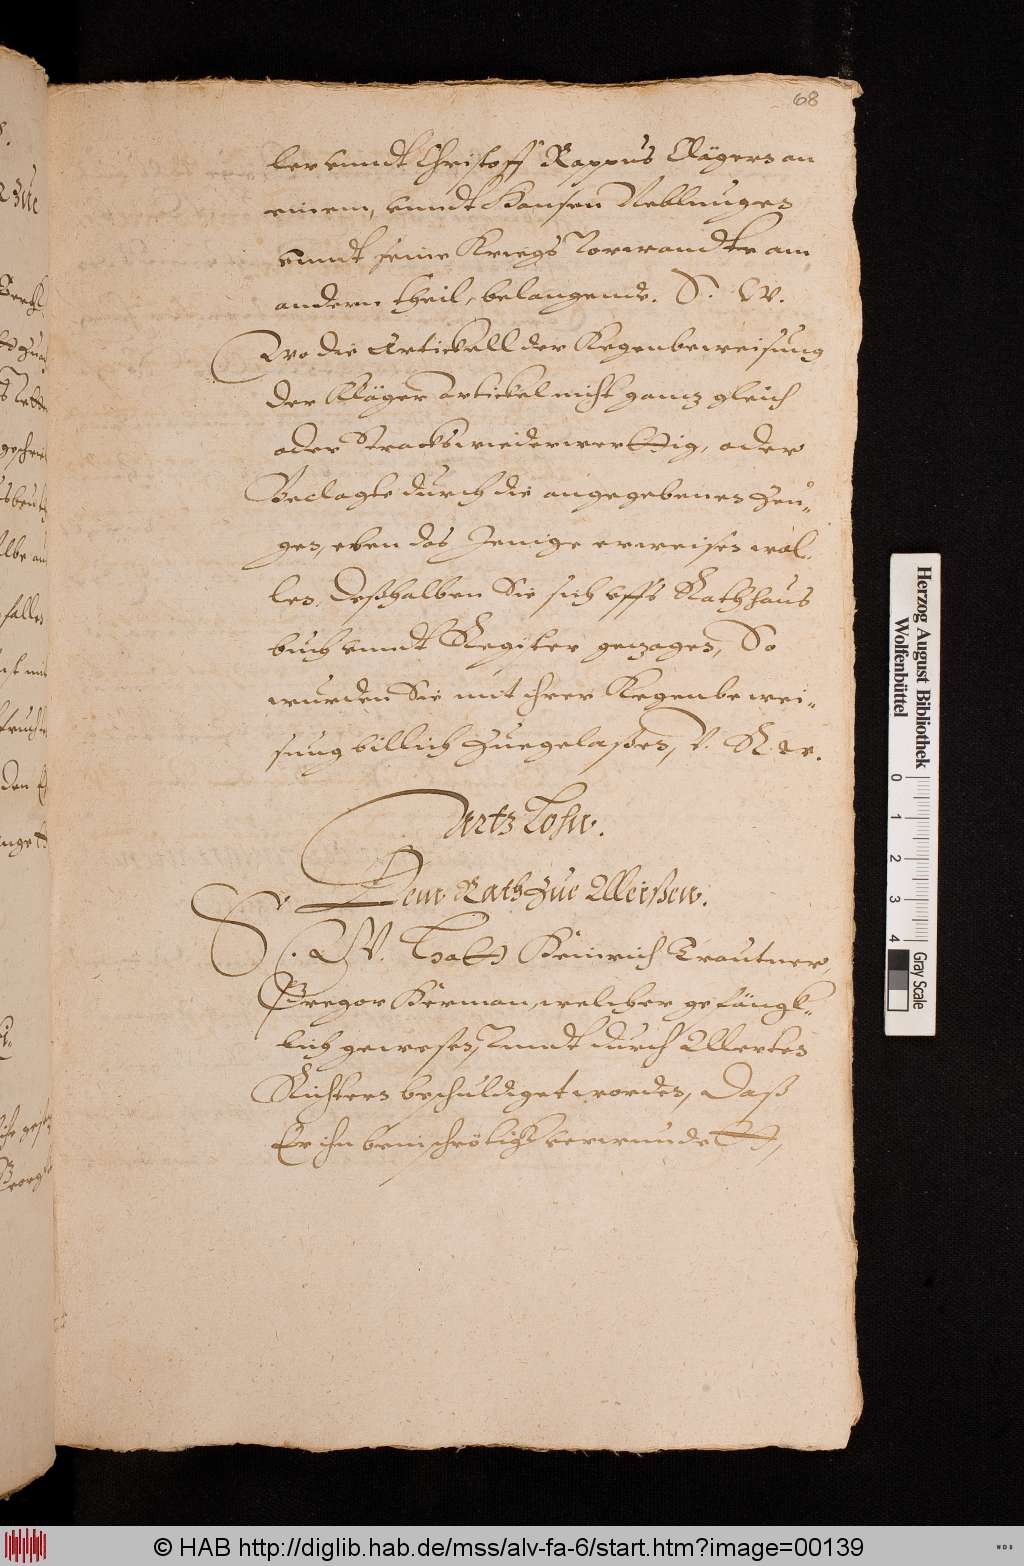 68
ler vnndt Christoff Rappus Clägern an
einem, vnndt Hansen Neblunges
vnndt seine Kriegs Vorwandte am
andern theil, belangende. S. W.
Wo die Artickell der Kegenbeweisung
der Kläger artickel nicht gantz gleich
oder Stracks wiederwertig, oder
Beclagte durch die angegebenen Zeu-
gen, eben das Jenige erweisen wöl-
len, Deßhalben Sie sich vffs Rathhaus
buch vnndt Register gezogen, So
wurden Sie mit ihrer Kegenbewei-
sung billich Zuegelaßen, V. R. w.
Artz Lohn.
Dem Rath Zue Meißen.
V. G. Hatt Heinrich Trautner,
Gregor Herman, welcher gefängk-
lich gewesen, Vnndt durch
Richters beschuldiget worden, Daß
Er ihn verwundett,
Herzog August Bibliothek
Wolfenbüttel
0 1 2 3 4
Gray Scale
© HAB http://diglib.hab.de/mss/alv-fa-6/start.htm?image=00139